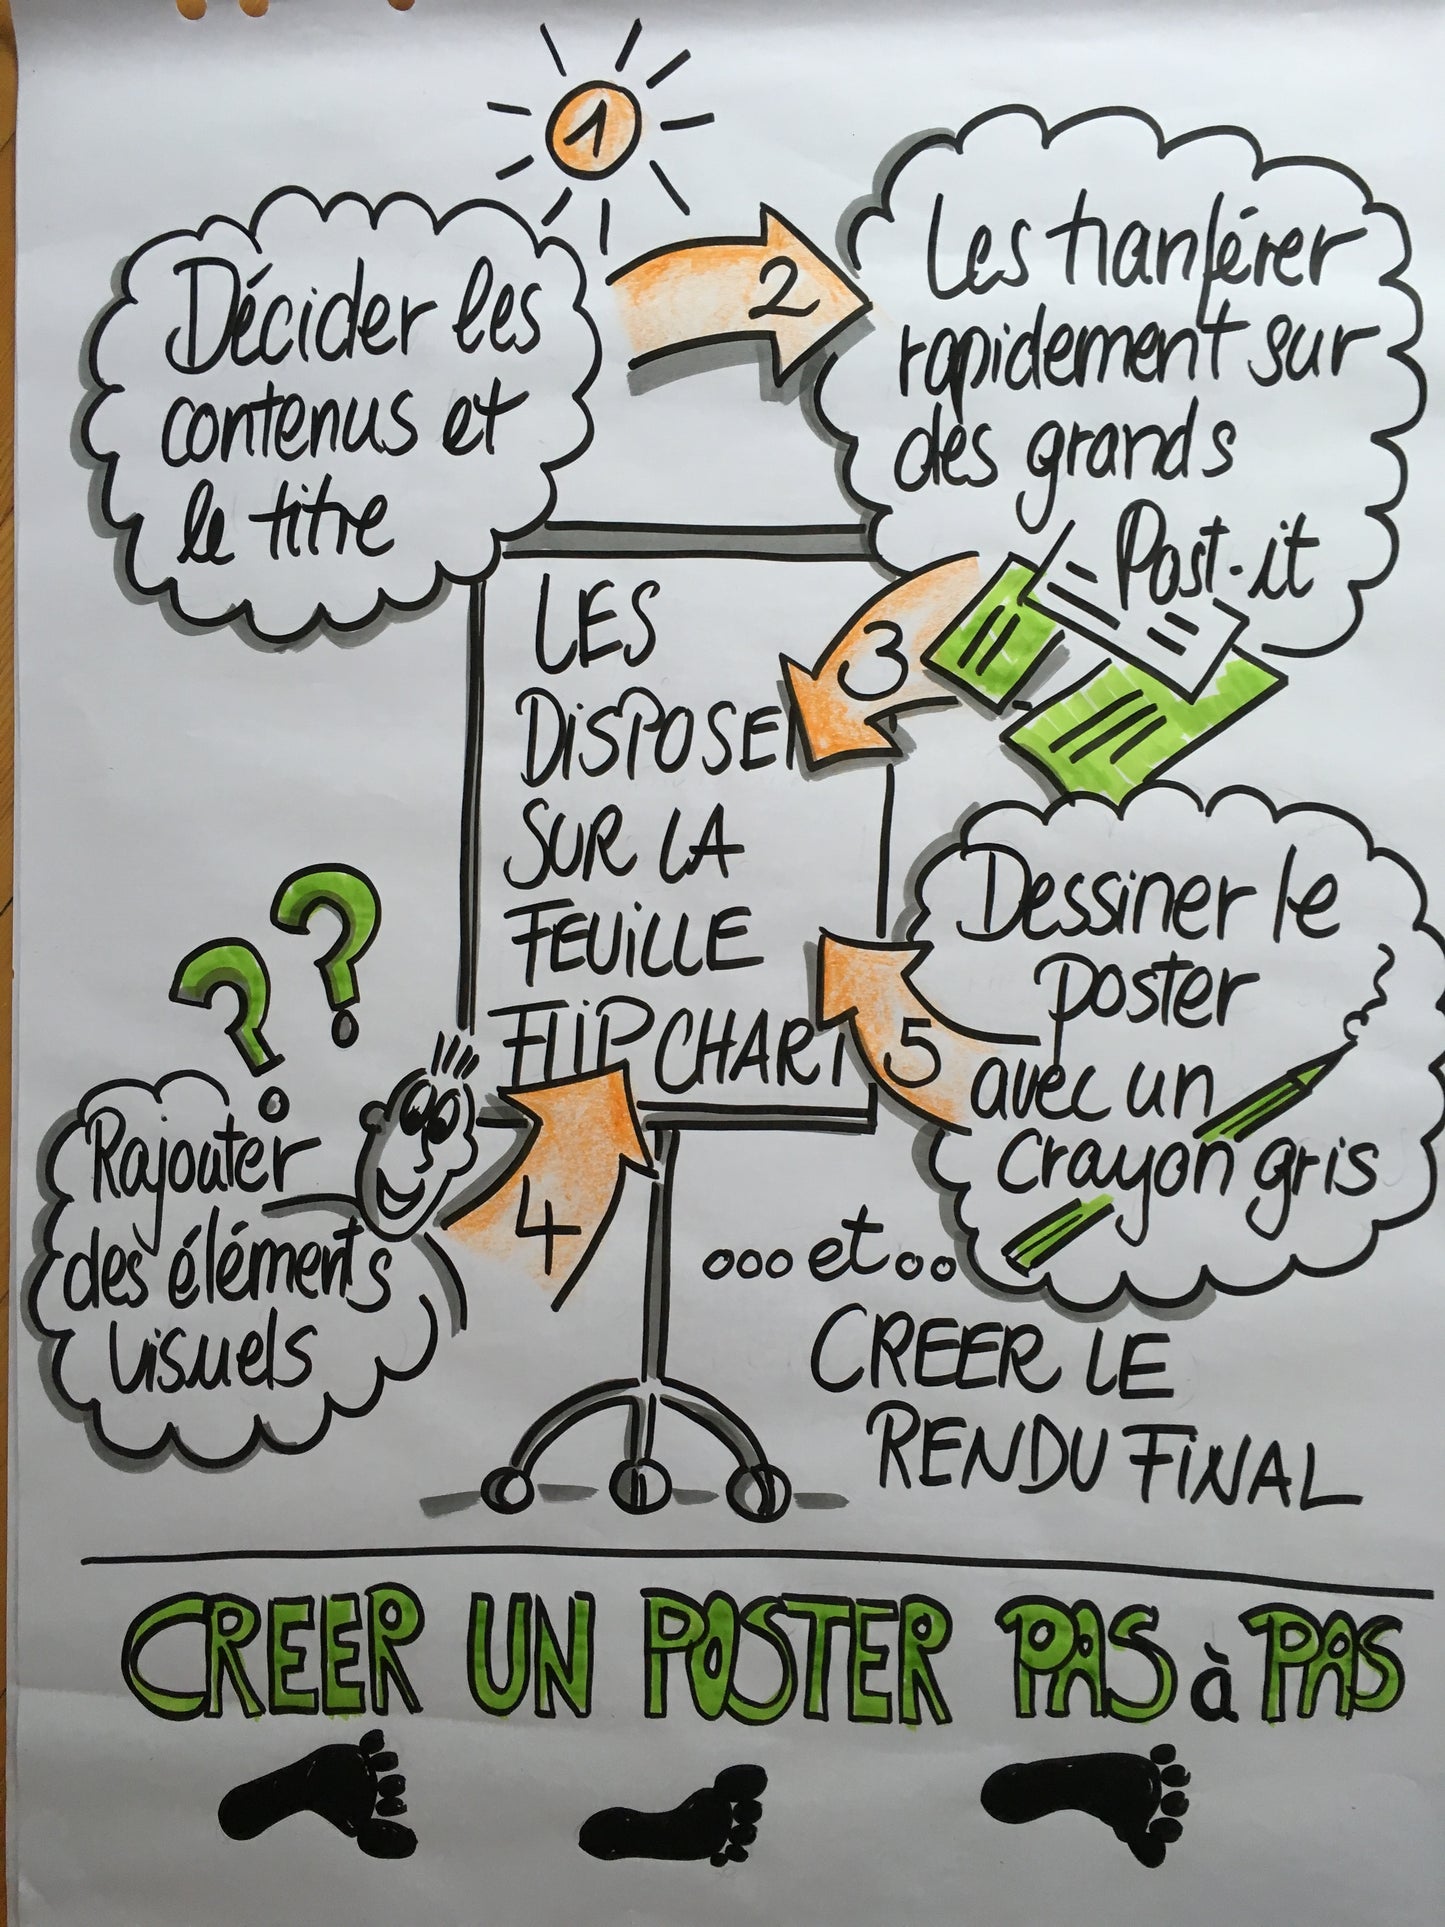 1
Décider les
contenus et
le titre
2
Les tranférer
rapidement sur
des grands
Post-it
3
LES
DISPOSER
SUR LA
FEUILLE
FLIPCHART
4
Rajouter
des éléments
visuels
? ?
5
Dessiner le
poster
avec un
crayon gris
ooo et oo
CREER LE
RENDU FINAL
CREER UN POSTER PAS à PAS